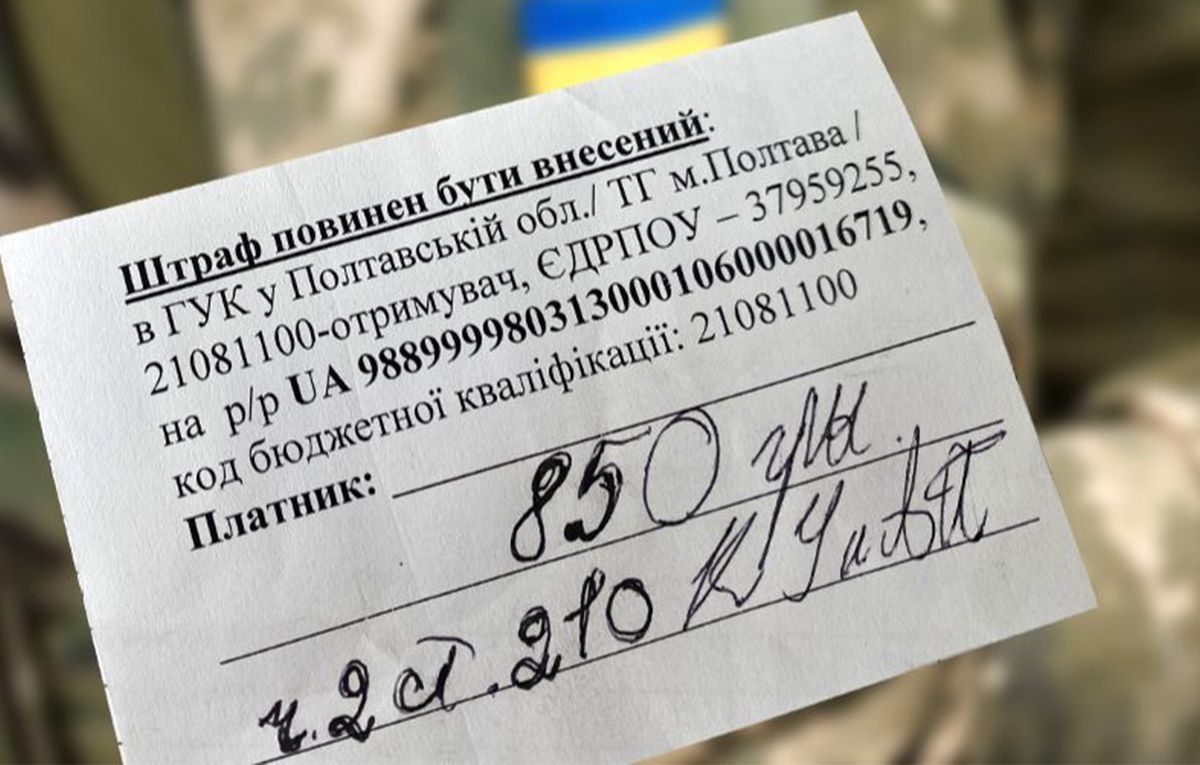 Штраф повинен бути внесений:
в ГУК у Полтавській обл./ ТГ м.Полтава /
21081100-отримувач, ЄДРПОУ – 37959255,
на р/р UA 988999980313000106000016719,
код бюджетної кваліфікації: 21081100
Платник: 850 грн
ч.2 ст.210 КУпАП